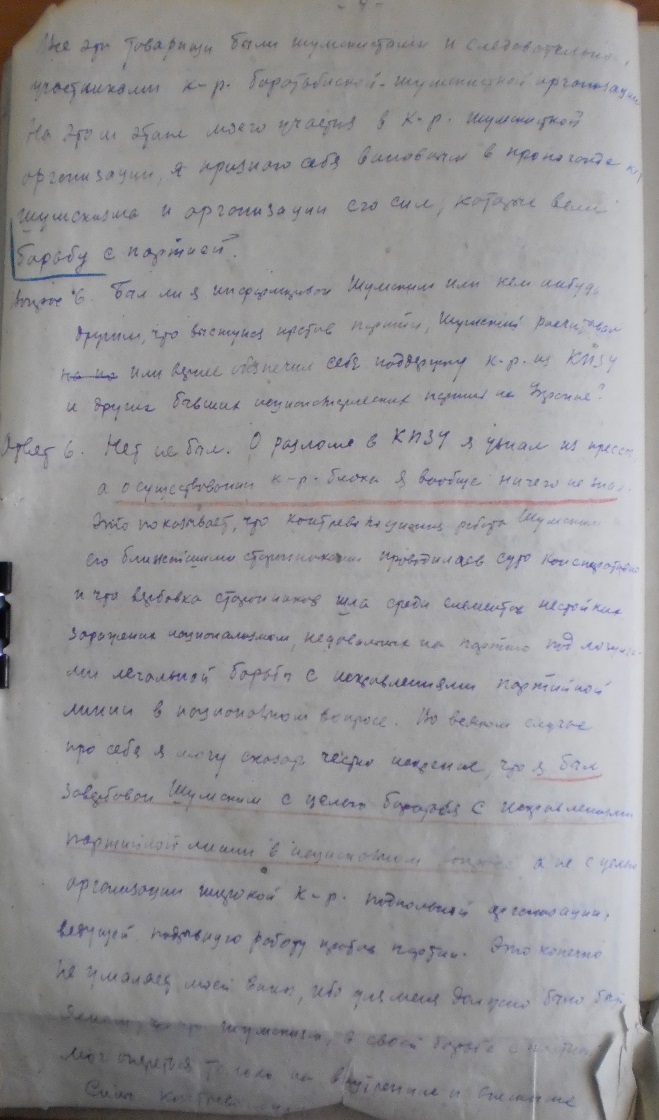 - 4 -
Все эти товарищи были шумскистами и следовательно,
участниками к-р. боротьбиской-шумскистской организации.
На этом этапе моего участия в к-р. шумскистской
организации, я признаю себя виновным в пропаганде
шумскизма и организации его сил, которые вели
борьбу с партией.
Вопрос 6. Был ли я информирован Шумским или кем нибудь
другим, что выступая против партии, Шумский рассчитывал
или вернее обеспечил себе поддержку к-р. из КПЗУ
и других бывших националистических партий на Украине?
Ответ 6. Нет не был. О разломе в КПЗУ я узнал из прессы,
а о существовании к-р. блока я вообще ничего не знал.
Это показывает, что контрреволюционная работа Шумским
его ближайшими сторонниками проводилась сугубо конспиративно
и что вербовка сторонников шла среди элементов нестойких
зараженных национализмом, недовольных на партию под
ми легальной борьбы с искривлениями партийной
линии в национальном вопросе. Во всяком случае
про себя я могу сказать честно искренне, что я был
завербован Шумским с целью бороться с искривлениями
партийной линии в национальном вопросе а не с целью
организации широкой к-р. подпольной организации,
ведущей подрывную работу против партии. Это конечно
не умаляет моей вины, ибо для меня должно было быть
ясным, что шумскизм, в своей борьбе с партией
мог опереться только на внутренние и внешние
Силы